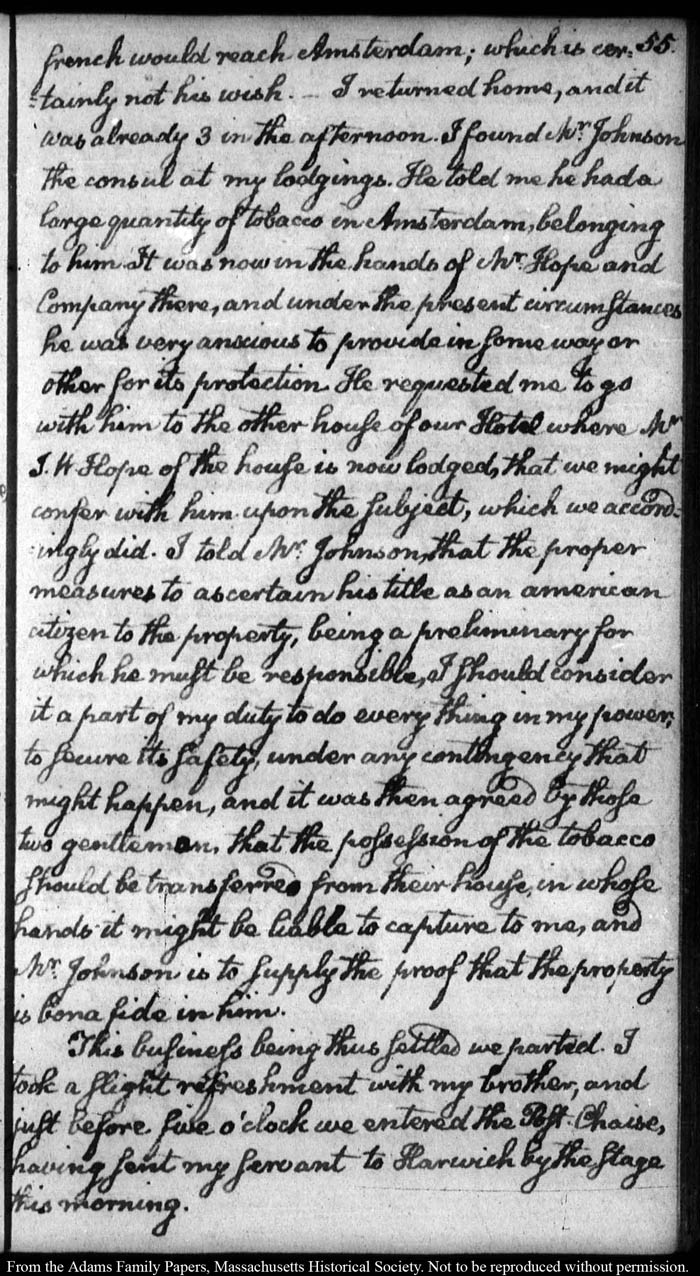 55.
french would reach Amsterdam; which is cer-
-tainly not his wish. — I returned home, and it
was already 3 in the afternoon. I found Mr. Johnson
the consul at my lodgings. He told me he had a
large quantity of tobacco in Amsterdam, belonging
to him It was now in the hands of Mr. Hope and
Company there, and under the present circumstances
he was very anxious to provide in some way or
other for its protection He requested me to go
with him to the other house of our Hotel where Mr
J. H Hope of the house is now lodged, that we might
confer with him upon the subject, which we accord-
-ingly did. I told Mr. Johnson, that the proper
measures to ascertain his title as an american
citizen to the property, being a preliminary for
which he must be responsible, I should consider
it a part of my duty to do every thing in my power,
to secure its safety, under any contingency that
might happen, and it was then agreed by those
two gentlemen, that the possession of the tobacco
should be transferred from their house, in whose
hands it might be liable to capture to me, and
Mr. Johnson is to supply the proof that the property
is bona fide in him.
This business being thus settled we parted. I
took a slight refreshment with my brother, and
just before five o'clock we entered the Post-Chaise,
having sent my servant to Harwich by the stage
this morning.
From the Adams Family Papers, Massachusetts Historical Society. Not to be reproduced without permission.